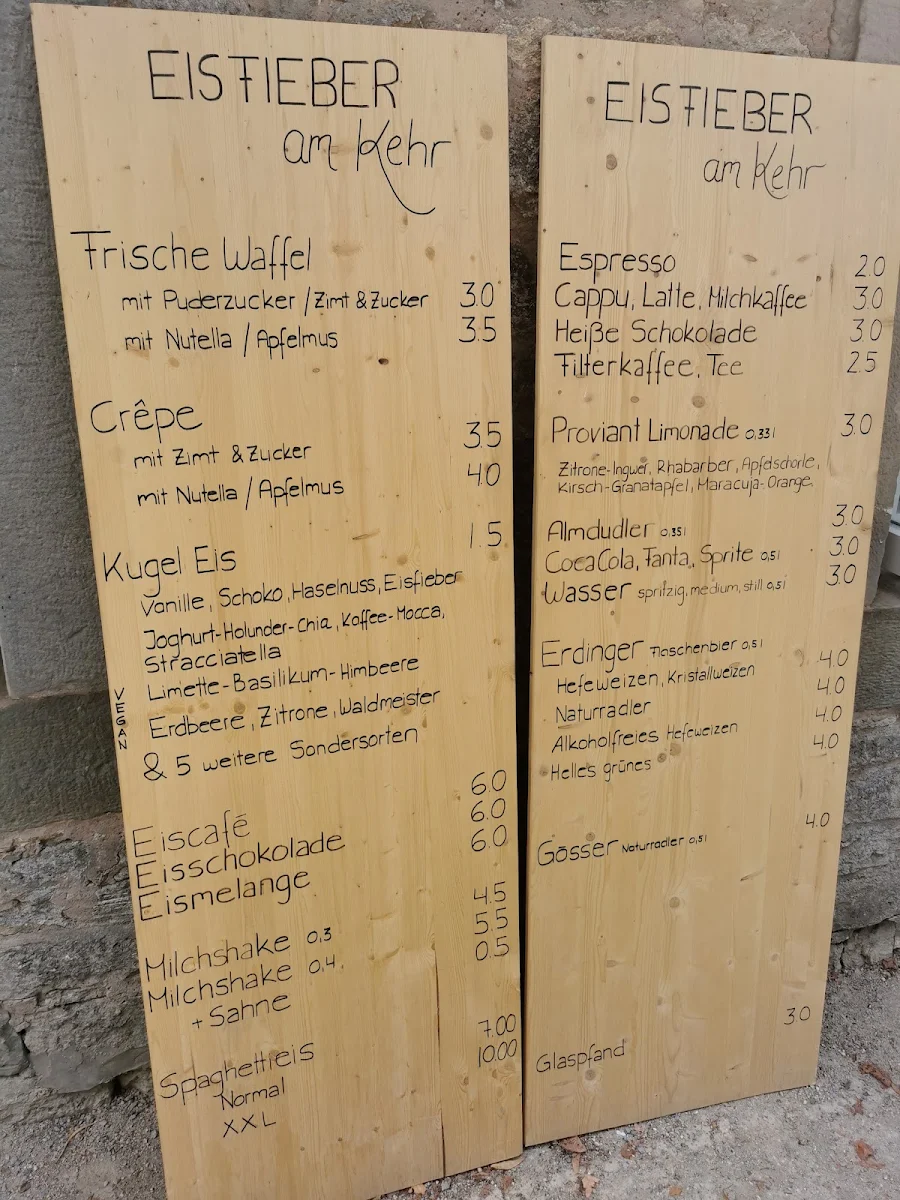 EISFIEBER
am Kehr
Frische Waffel
mit Puderzucker / Zimt & Zucker 3.0
mit Nutella / Apfelmus 3.5
Crêpe
mit Zimt & Zucker 3.5
mit Nutella / Apfelmus 4.0
Kugel Eis 1.5
Vanille, Schoko, Haselnuss, Eisfieber
Joghurt-Holunder-Chia, Kaffee-Mocca,
Stracciatella
Limette-Basilikum-Himbeere
VEGAN
Erdbeere, Zitrone, Waldmeister
& 5 weitere Sondersorten
Eiscafé 6.0
Eisschokolade 6.0
Eismelange 6.0
Milchshake 0,3 4.5
Milchshake 0,4 5.5
+ Sahne 0.5
Spaghettieis
Normal 7.00
XXL 10.00
EISFIEBER
am Kehr
Espresso 2.0
Cappu, Latte, Milchkaffee 3.0
Heiße Schokolade 3.0
Filterkaffee, Tee 2.5
Proviant Limonade 0,33l 3.0
Zitrone-Ingwer, Rhabarber, Apfelschorle,
Kirsch-Granatapfel, Maracuja-Orange
Almdudler 0,35l 3.0
CocaCola, Fanta, Sprite 0,5l 3.0
Wasser spritzig, medium, still 0,5l 3.0
Erdinger Flaschenbier 0,5l
Hefeweizen, Kristallweizen 4.0
Naturradler 4.0
Alkoholfreies Hefeweizen 4.0
Helles grünes 4.0
Gösser Naturradler 0,5l 4.0
Glaspfand 3.0